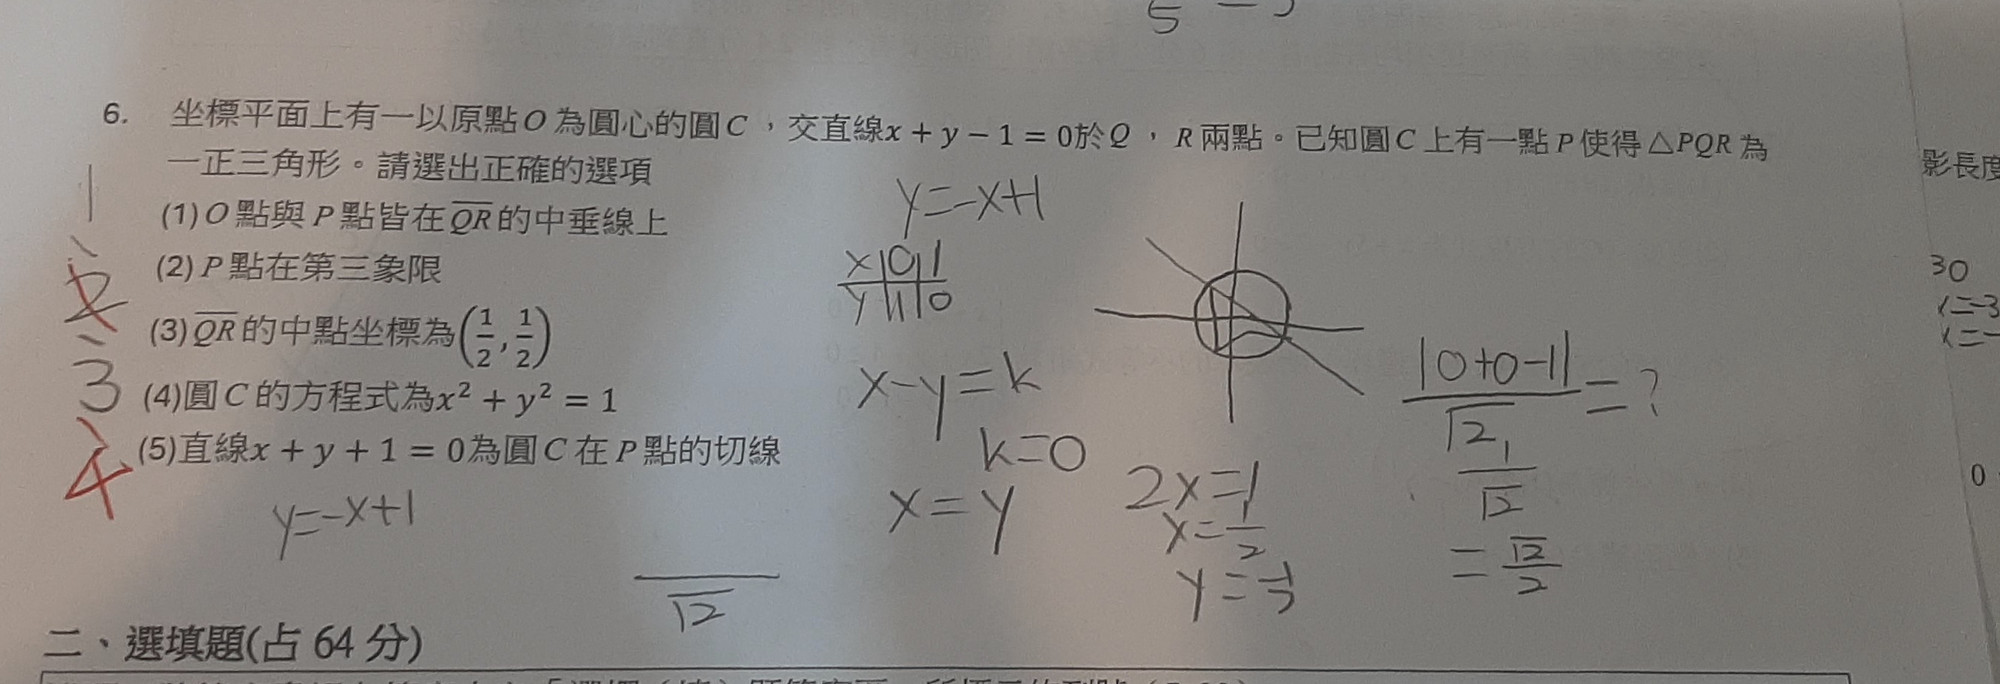 5
6. 坐標平面上有一以原點O為圓心的圓C，交直線x + y − 1 = 0於Q，R兩點。已知圓C上有一點P使得△PQR為
一正三角形。請選出正確的選項
(1)O點與P點皆在QR的中垂線上
(2)P點在第三象限
(3)QR的中點坐標為(1/2, 1/2)
(4)圓C的方程式為x² + y² = 1
(5)直線x + y + 1 = 0為圓C在P點的切線
y=-x+1
1、2、3、4
y=-x+1
x 0 1
y 1 0
x-y=k
k=0
x=y
2x=1
x=1/2
|0+0-1|/√2=?
1/√2
=√2/2
√2
影長度
30
0
二、選填題(占 64 分)